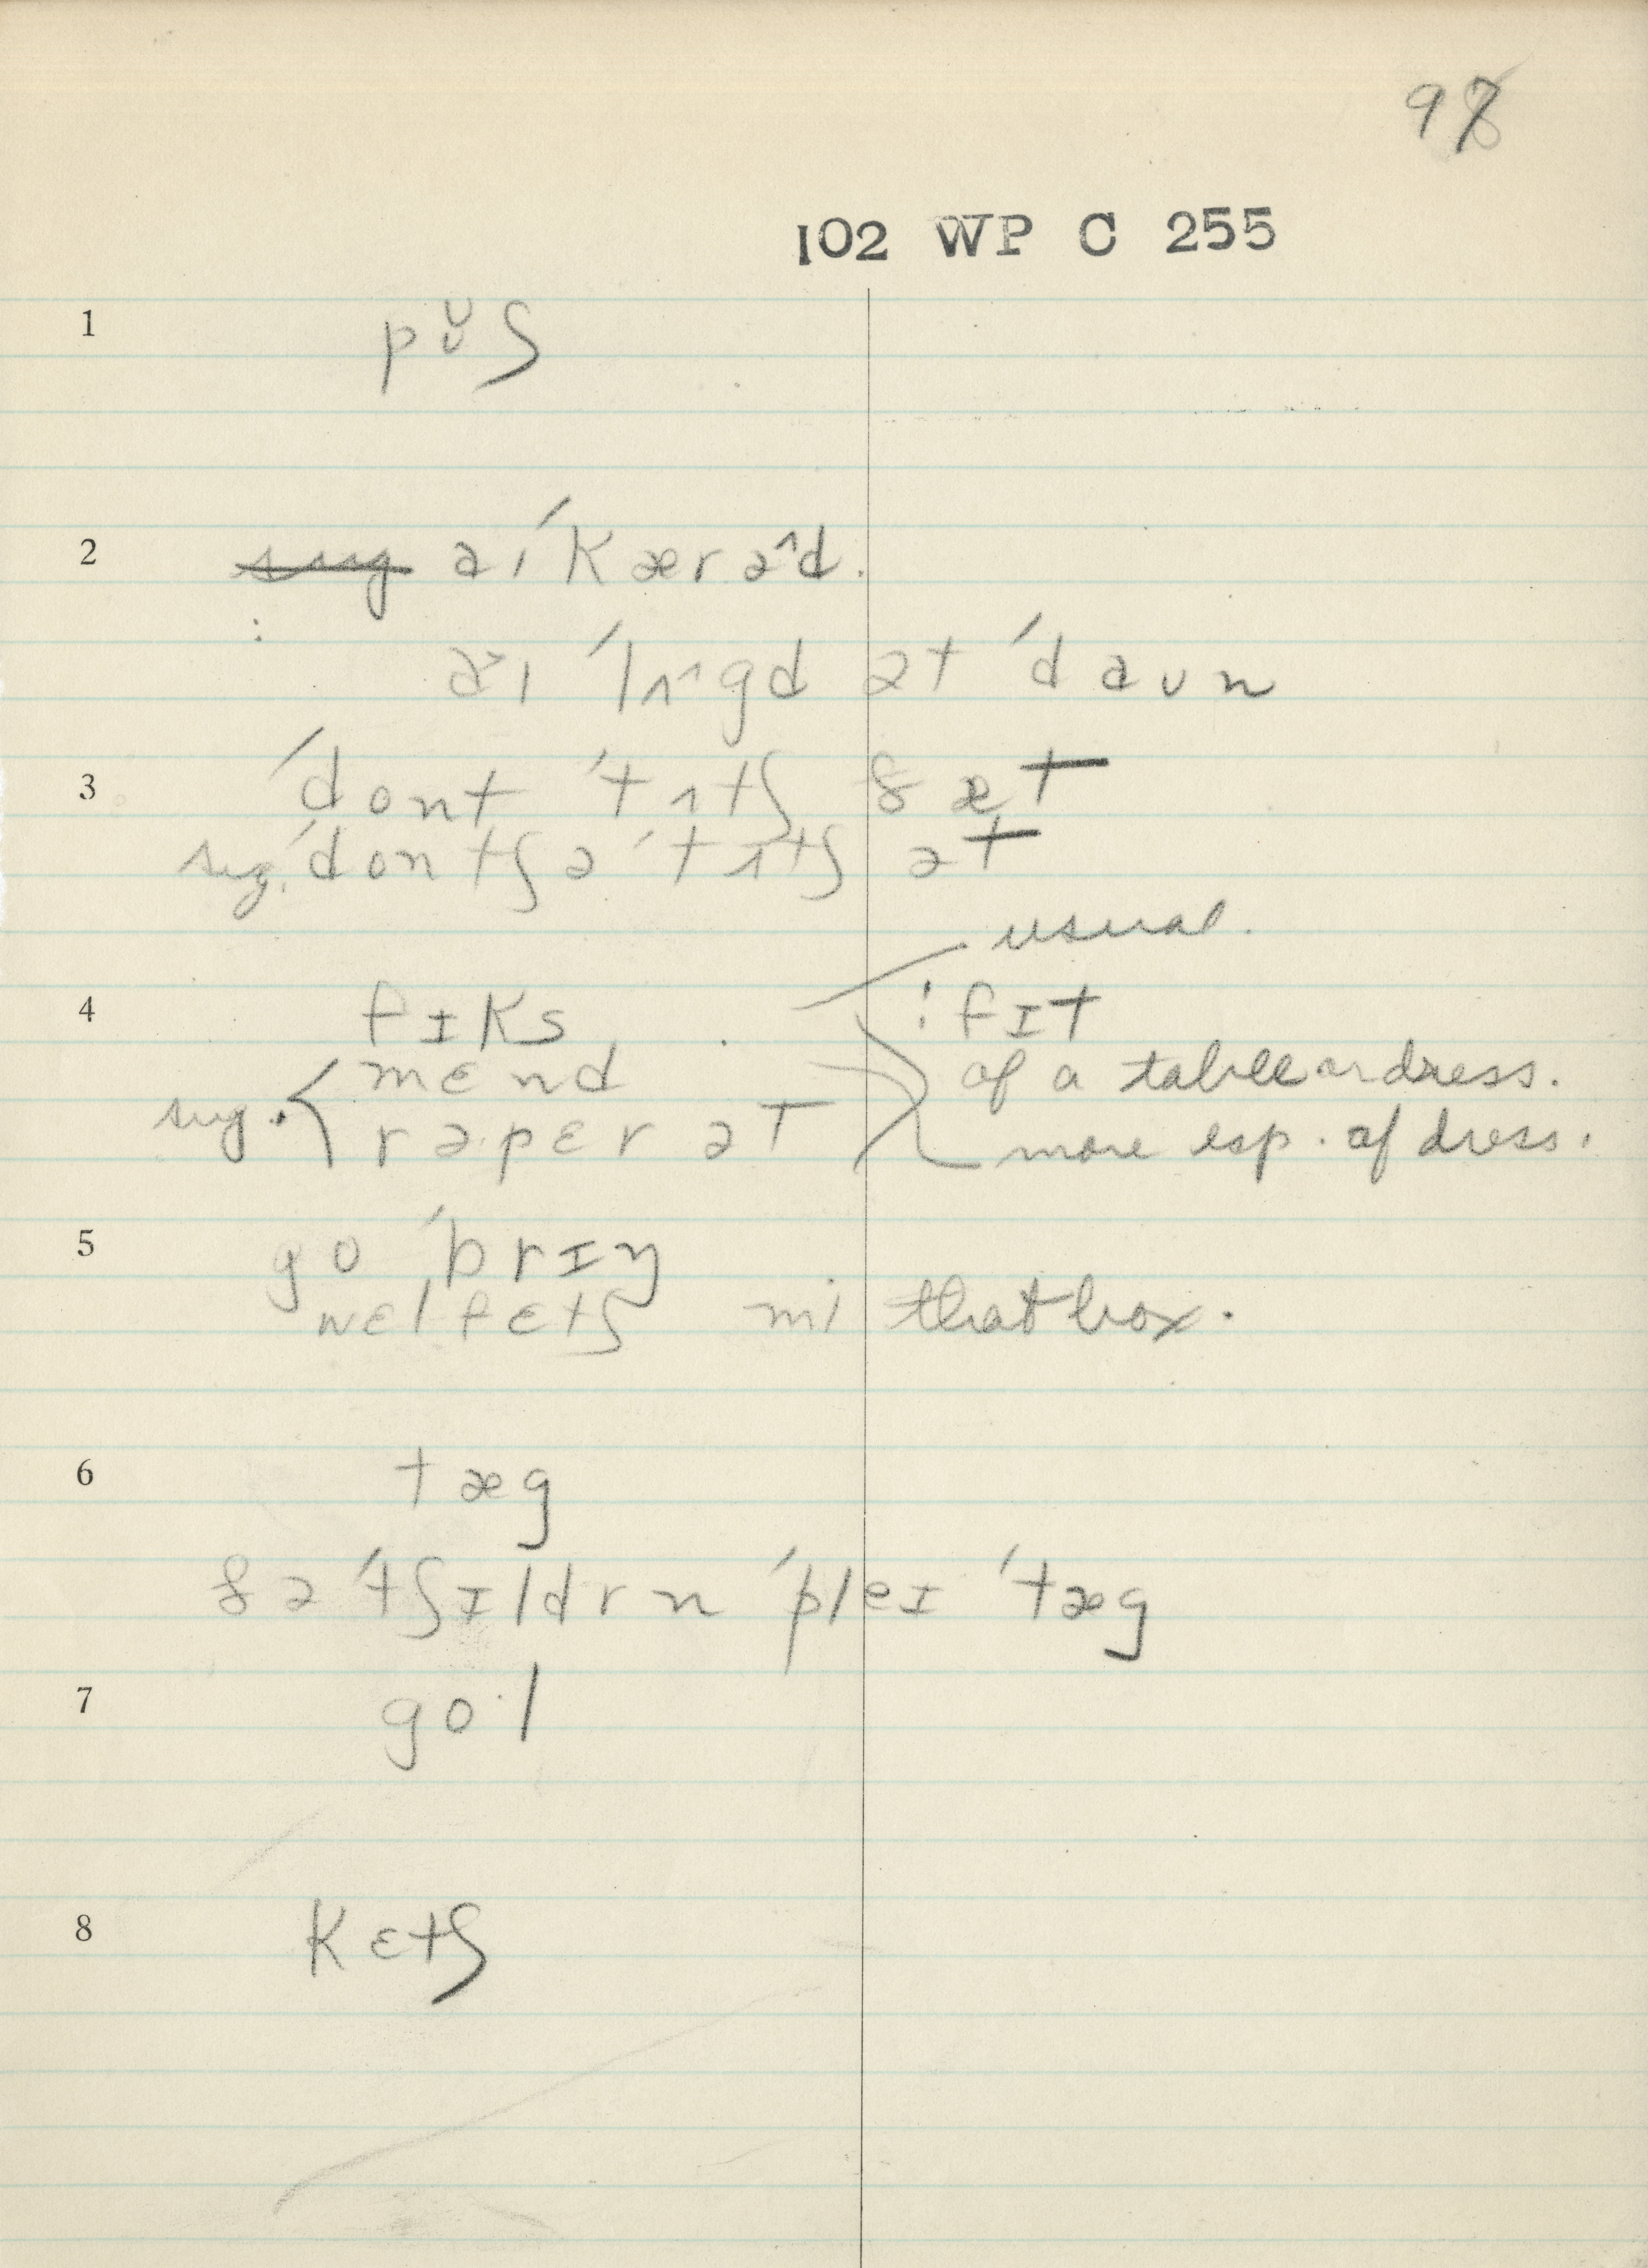 97
102 WP C 255
1 pʊ̆ʃ
2 ~~sug~~ aɪ ˈkærə^d.
: a˅ɪ ˈlʌ^gd ət ˈdaʊn
3 ˈdont ˈtʌtʃ ðæt
sug. ˈdontʃə ˈtʌtʃ ət
usual.
4 fɪks : fɪt
mɛnd of a table or dress.
sug. rəpɛrət more esp. of dress.
5 go ˈbrɪŋ
wɛl fɛtʃ mi that box.
6 tæg
ðə ˈtʃɪldrn ˈpleɪ ˈtæg
7 go·l
8 kɛtʃ